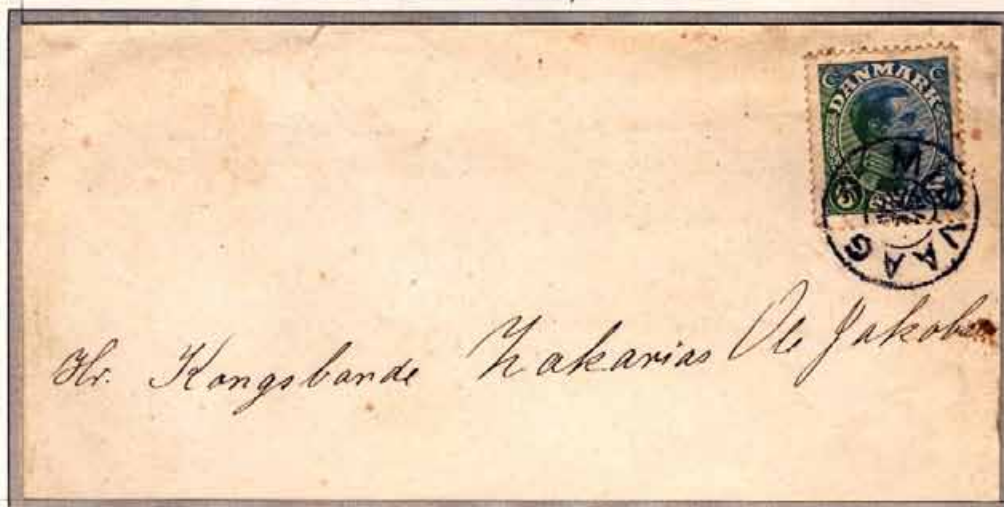 DANMARK
MIDVAAG
Hr. Kongsbonde Zakarias Ole Jakobsen